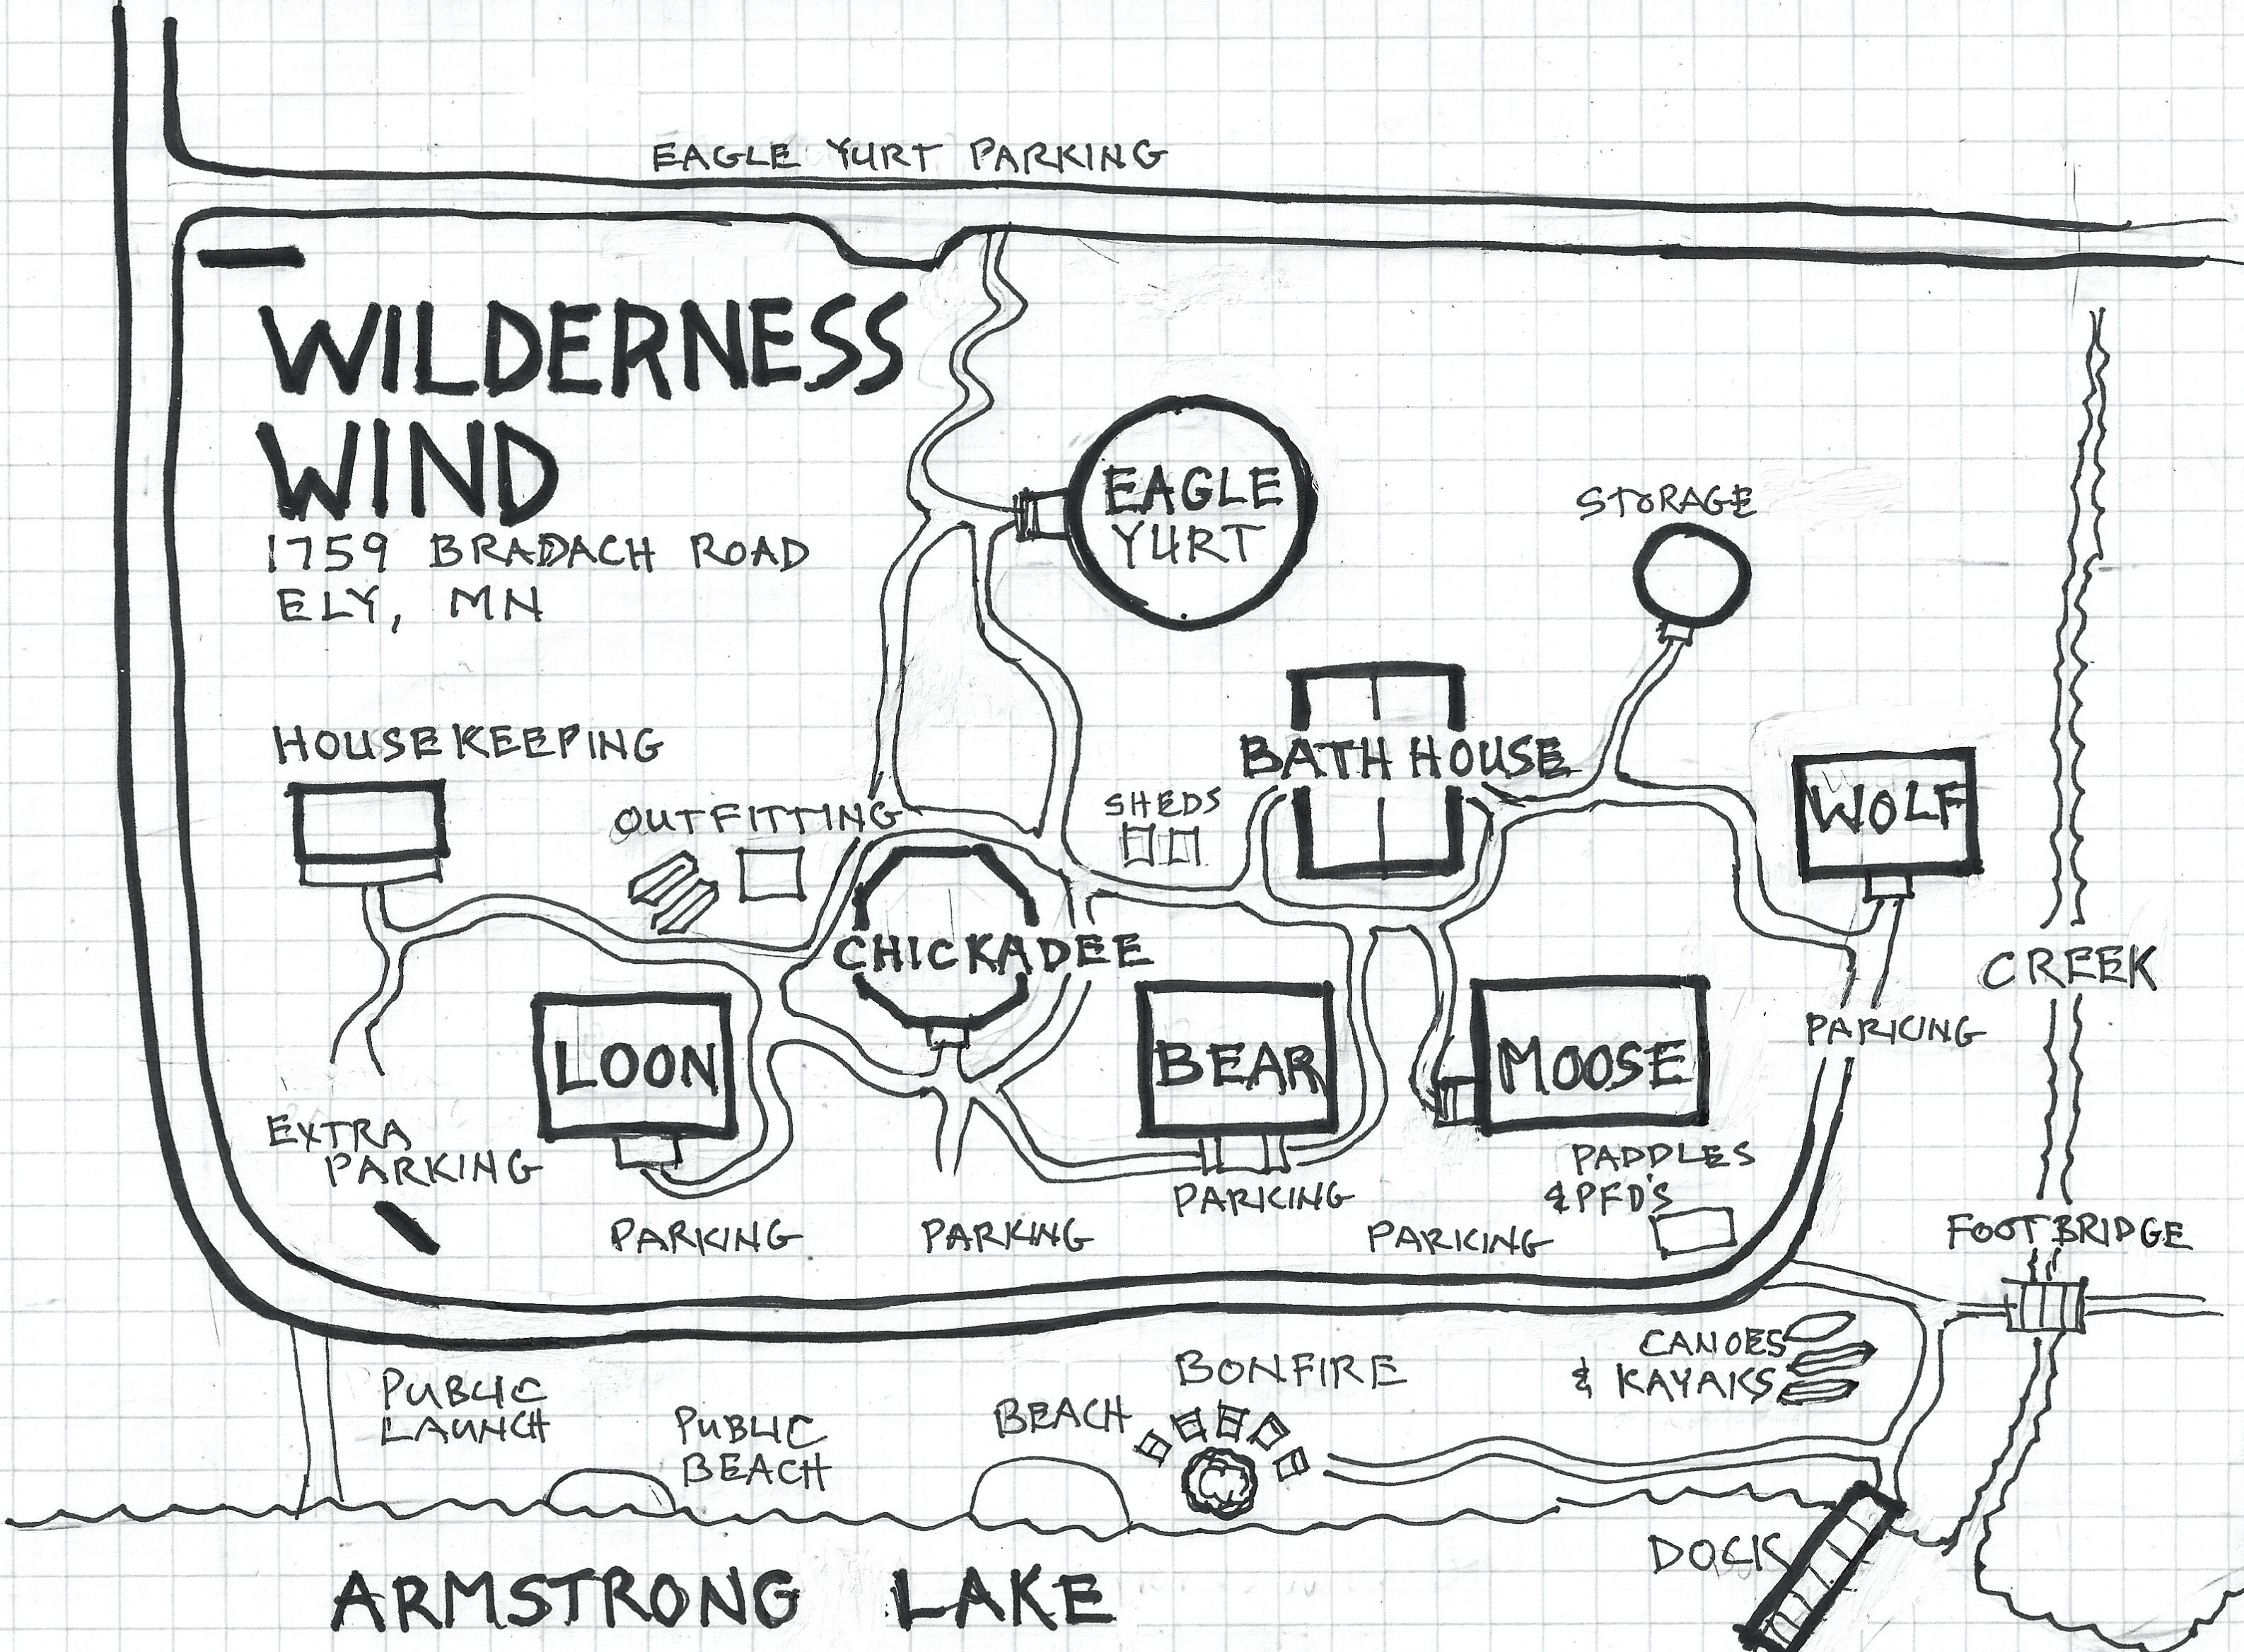 EAGLE YURT PARKING
WILDERNESS
WIND
1759 BRADACH ROAD
ELY, MN
EAGLE
YURT
STORAGE
HOUSEKEEPING
BATH HOUSE
OUTFITTING
SHEDS
WOLF
CHICKADEE
CREEK
LOON
BEAR
MOOSE
PARKING
EXTRA
PARKING
PADDLES
& PFD'S
PARKING
PARKING
PARKING
PARKING
FOOT BRIDGE
CANOES
& KAYAKS
BONFIRE
PUBLIC
LAUNCH
PUBLIC
BEACH
BEACH
DOCK
ARMSTRONG LAKE